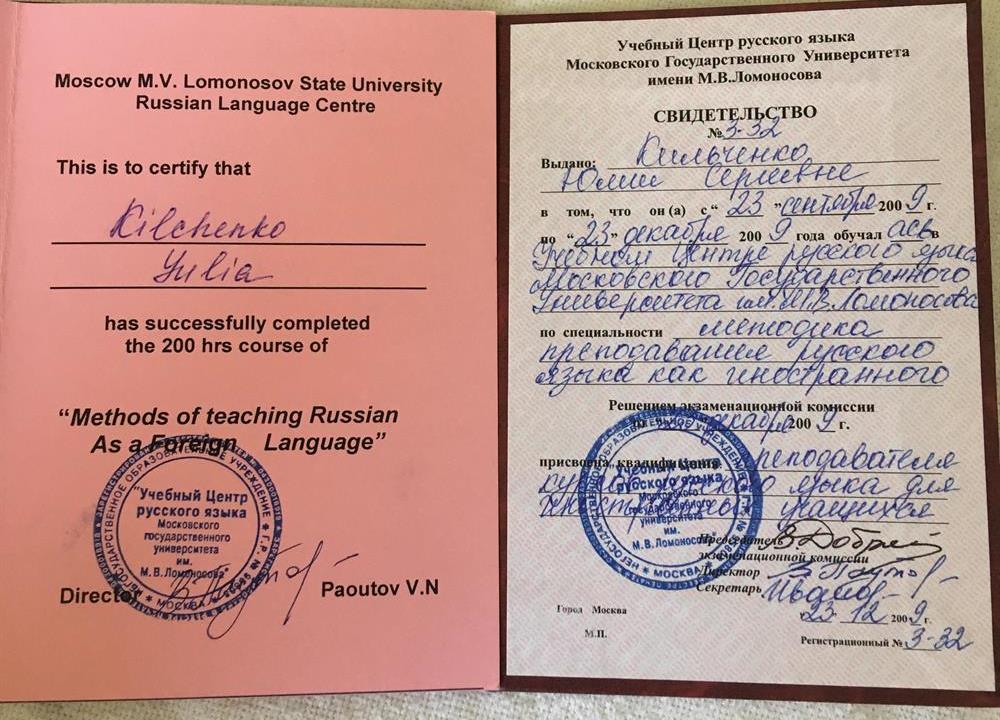 Moscow M.V. Lomonosov State University
Russian Language Centre
This is to certify that
Kilchenko
Yulia
has successfully completed
the 200 hrs course of
“Methods of teaching Russian
As a Foreign Language”
"Учебный Центр
русского языка
Московского
государственного
университета
им.
М.В.Ломоносова"
МОСКВА
Director
Paoutov V.N
Учебный Центр русского языка
Московского Государственного Университета
имени М.В.Ломоносова
СВИДЕТЕЛЬСТВО
№ 3-32
Выдано: Кильченко
Юлии Сергеевне
в том, что он (а) с “ 23 ” сентября 200 9 г.
по “ 23 ” декабря 200 9 года обучал ась в
Учебном Центре русского языка
Московского Государственного
Университета им. М.В.Ломоносова
по специальности методика
преподавания русского
языка как иностранного
Решением экзаменационной комиссии
декабря 200 9 г.
присвоена квалификация преподавателя
языка для
учащихся
Учебный Центр
русского языка
Московского
государственного
университета
им.
М.В. Ломоносова
МОСКВА
Председатель
экзаменационной комиссии
Директор
Секретарь
Город Москва
23 12 200 9 г.
М.П.
Регистрационный № 3-32